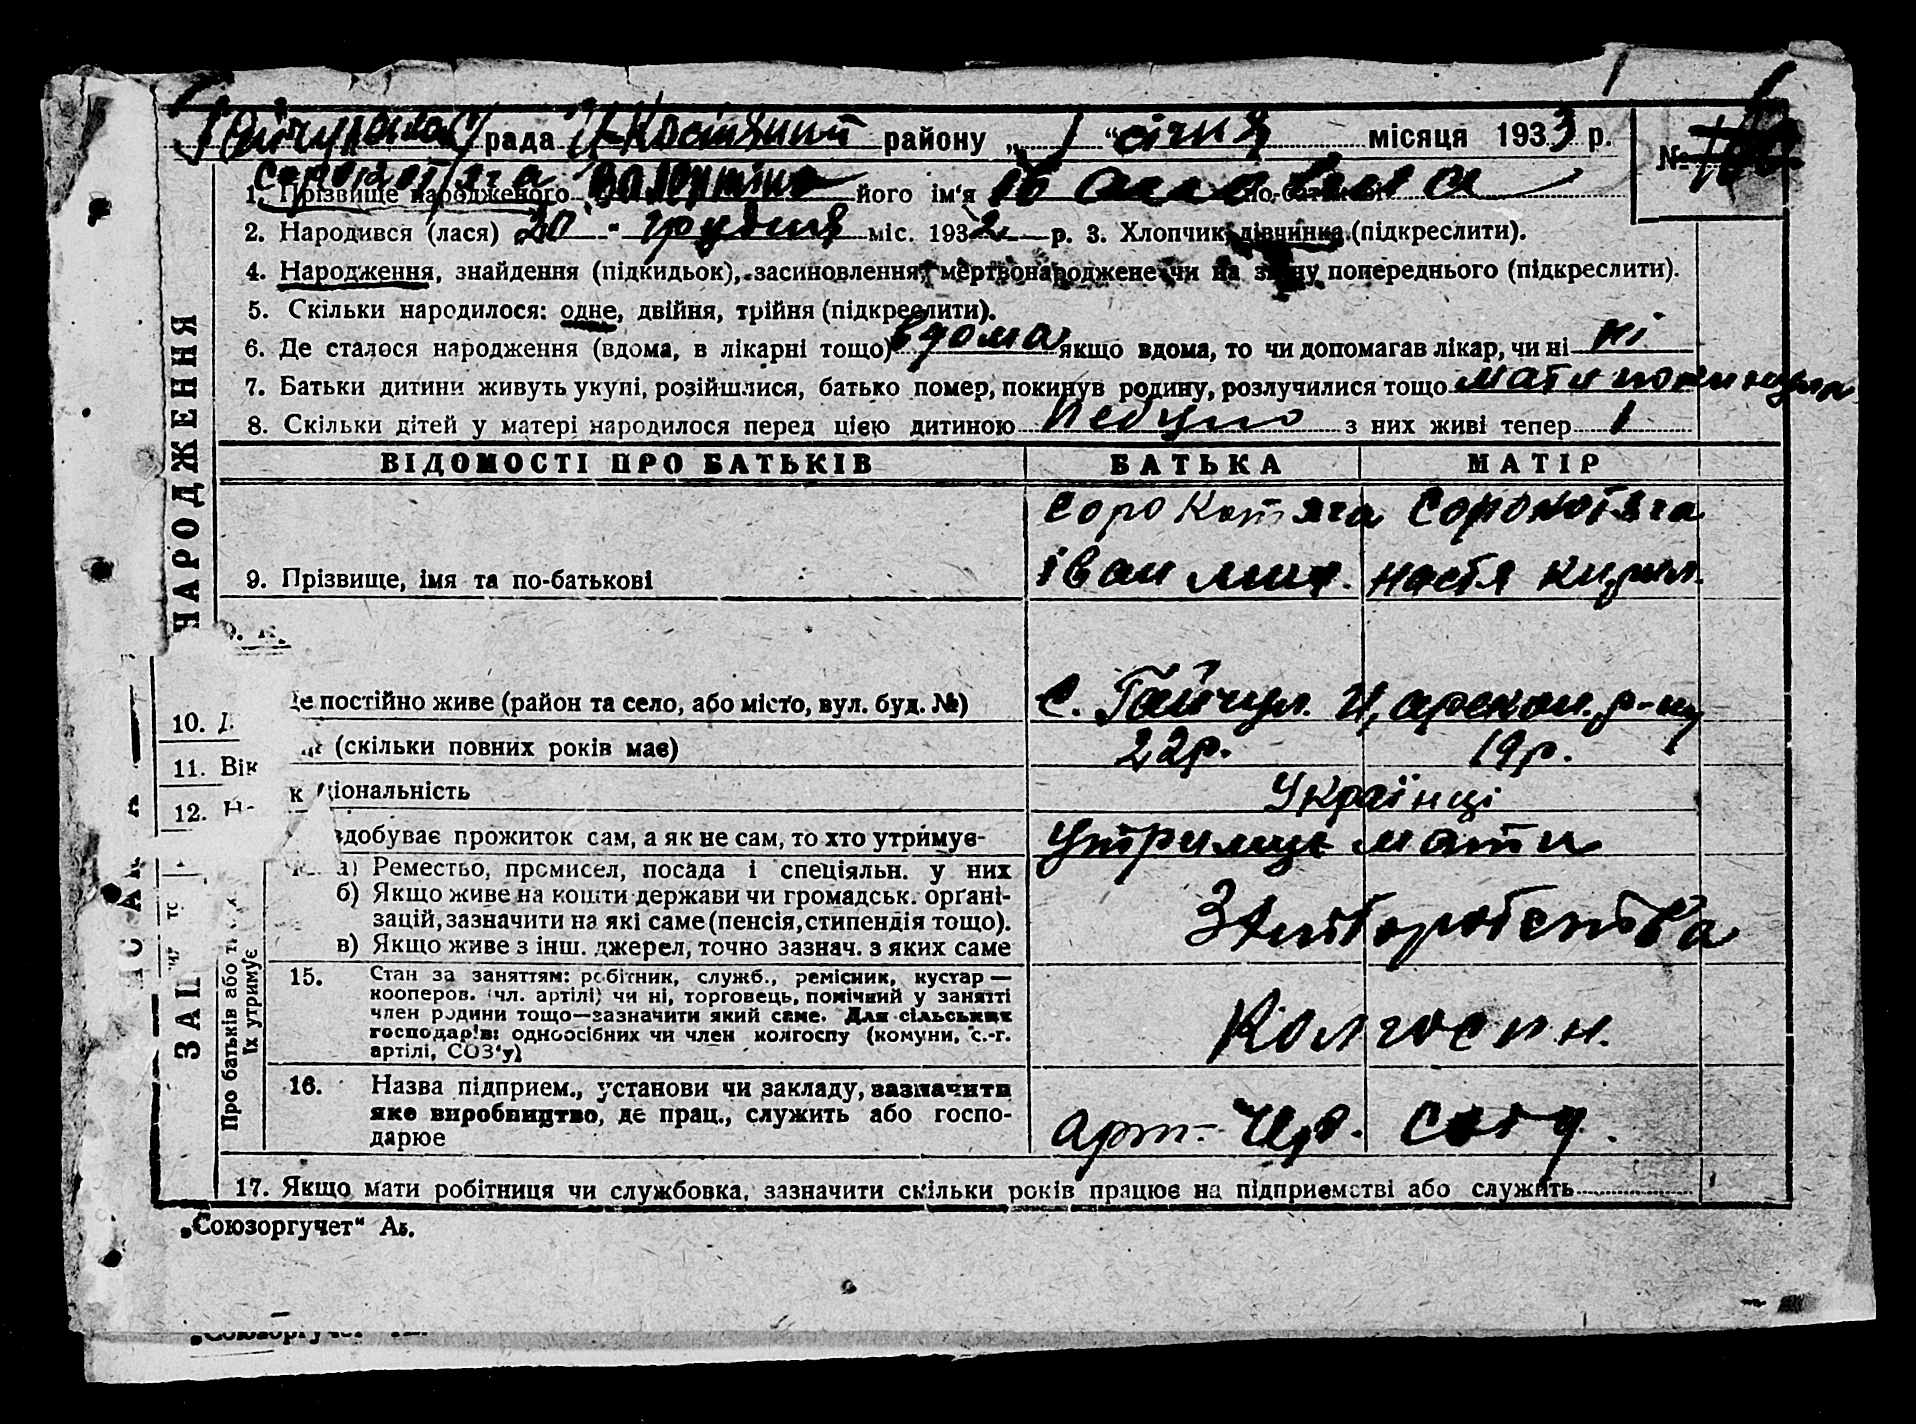 рада району „ 1 “ січня місяця 1933 р. №
Сорокотяга
1. Прізвище народженого Валентина його ім'я Івановна по-батькові
2. Народився (лася) 20 - грудня міс. 1932 р. 3. Хлопчик, дівчинка (підкреслити).
4. Народження, знайдення (підкидьок), засиновлення, мертвонароджене чи на зміну попереднього (підкреслити).
5. Скільки народилося: одне, двійня, трійня (підкреслити).
6. Де сталося народження (вдома, в лікарні тощо) вдома якщо вдома, то чи допомагав лікар, чи ні ні
7. Батьки дитини живуть укупі, розійшлися, батько помер, покинув родину, розлучилися тощо мати покинула
8. Скільки дітей у матері народилося перед цією дитиною не було з них живі тепер 1
ВІДОМОСТІ ПРО БАТЬКІВ БАТЬКА МАТІР
Сорокотяга Сорокотяга
9. Прізвище, імя та по-батькові Іван Мит. Настя Кирил.
Де постійно живе (район та село, або місто, вул. буд. №) с. Гайчул. Царекон. р-ну
10.
(скільки повних років має) 22р. 19р.
11. Вік
ціональність Українці
12.
здобуває прожиток сам, а як не сам, то хто утримує- утримує мати
а) Ремество, промисел, посада і спеціяльн. у них
б) Якщо живе на кошти держави чи громадськ. орґані-
зацій, зазначити на які саме (пенсія, стипендія тощо).
в) Якщо живе з інш. джерел, точно зазнач. з яких саме
15. Стан за заняттям: робітник, служб., ремісник, кустар —
кооперов. (чл. артілі) чи ні, торговець, помічний у занятті
член родини тощо—зазначити який саме. Для сільських
господарів: одноосібних чи член колгоспу (комуни, с.-г.
артілі, СОЗ'у)
Колгоспн.
16. Назва підприєм., установи чи закладу, зазначити
яке виробництво, де прац., служить або госпо-
дарює
арт. Чер.
17. Якщо мати робітниця чи службовка, зазначити скільки років працює на підприємстві або служить
НАРОДЖЕННЯ
Про батьків або
їх утримує
„Союзоргучет“